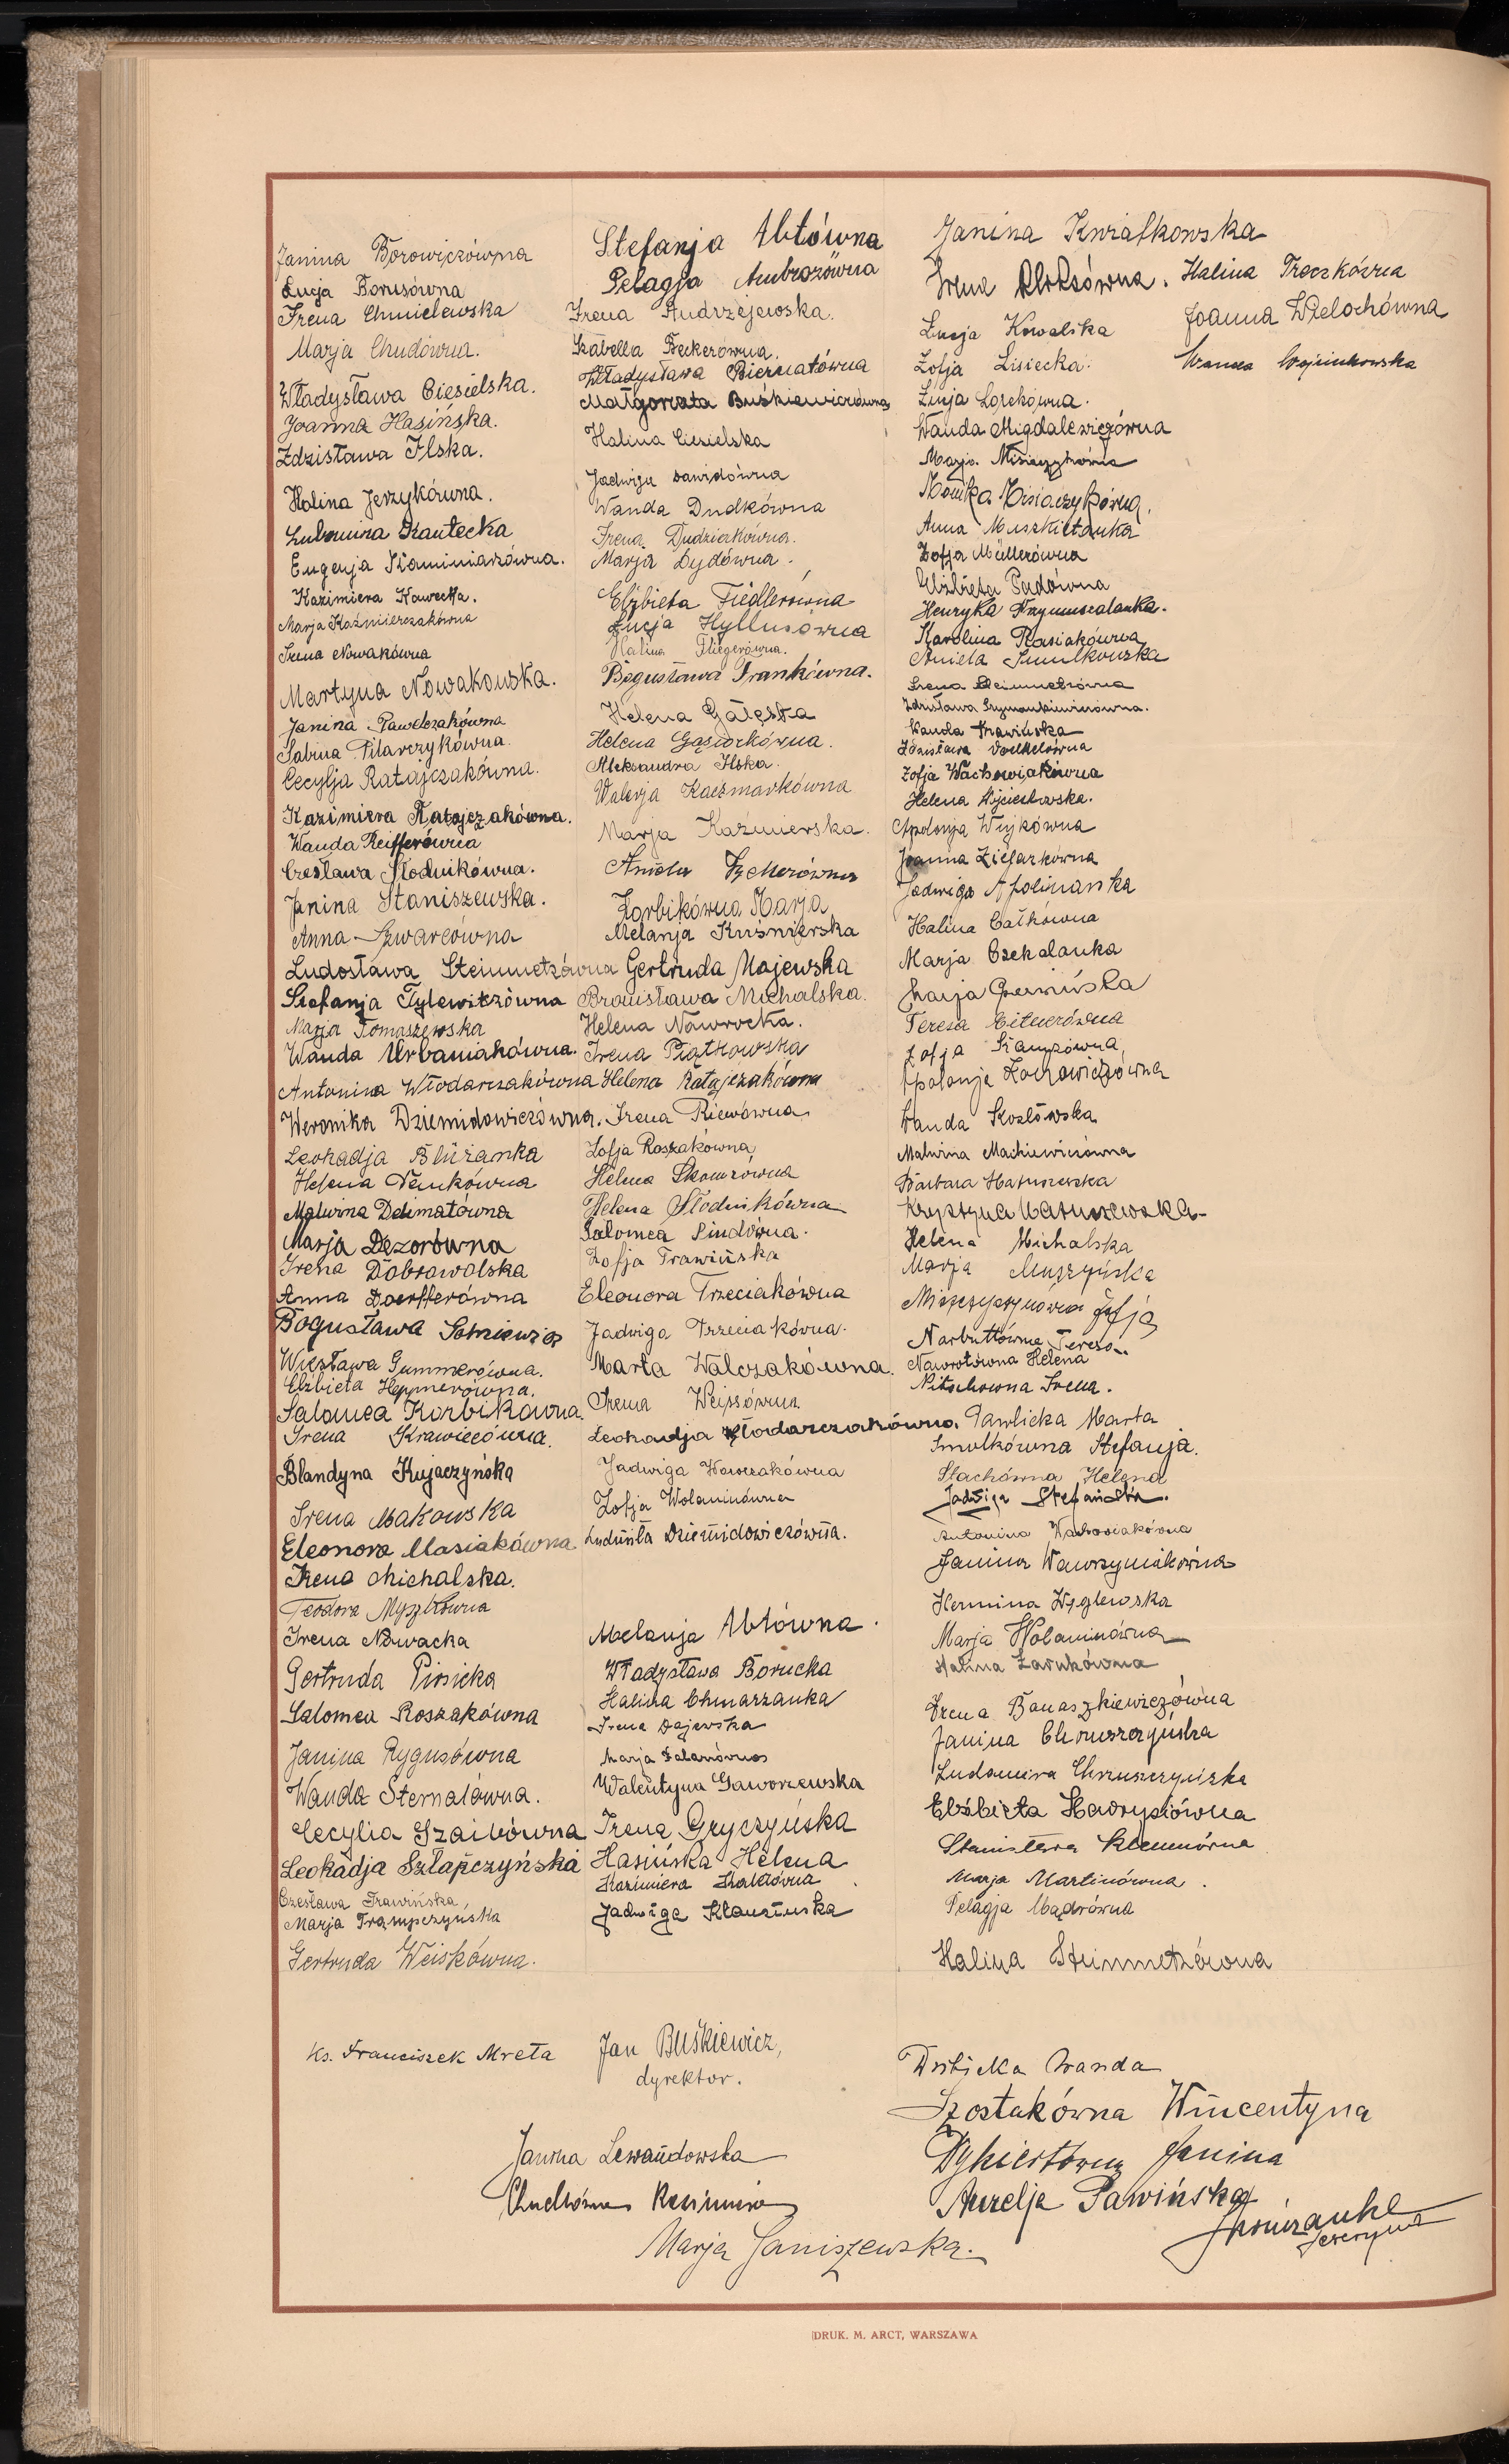 Janina Borowiczówna
Łucja Borusówna
Irena Chmielewska
Marja Chudówna.
Władysława Ciesielska.
Joanna Hasińska.
Zdzisława Ilska.
Halina Jerzykówna.
Lubomira Kantecka
Eugenja Kaminiarzówna.
Kazimiera Kawecka.
Marja Kaźmierczakówna
Irena Nowakówna
Martyna Nowakowska.
Janina Pawelczakówna
Sabina Pilarczykówna.
Cecylja Ratajczakówna.
Kazimiera Ratajczakówna.
Wanda Reifferówna
Czesława Słodnikówna.
Janina Staniszewska.
Anna Szwarcówna
Ludosława Steinmetzówna
Stefanja Tylewiczówna
Marja Tomaszewska
Wanda Urbaniakówna.
Antonina Włodarczakówna
Weronika Dziemidowiczówna.
Leokadja Bluzanka
Helena
Malwina Delimatówna
Marja Dezorówna
Irena Dobrowolska
Anna Doerfferówna
Bogusława
Więsława Gummerówna.
Elżbieta Heppnerówna.
Salomea Korbikówna
Irena Krawiecówna.
Blandyna Kujaczyńska
Irena Makowska
Eleonora Masiakówna
Irena Michalska.
Teodora Myszkówna
Irena Nowacka
Gertruda Piosicka
Salomea Roszakówna
Janina Rygusówna
Wanda Sternalówna.
Cecylia Szaibówna
Leokadja Szłapczyńska
Czesława Trawińska,
Marja Trąmpczyńska
Gertruda Weiskówna.
Stefanja Abtówna
Pelagja Ambrozówna
Irena Andrzejewska.
Izabella Beckerówna.
Władysława Biernatówna
Małgorzata Buśkiewiczówna
Halina Ciesielska
Jadwiga Dawidówna
Wanda Dudkówna
Irena Dudziakówna.
Marja Dydówna.
Elżbieta Fiedlerówna
Łucja Hyllusówna
Halina Fliegerówna.
Bogusława Frankówna.
Helena Gałęska
Helena Gąsiorkówna.
Aleksandra Ilska.
Walerja Kaczmarkówna
Marja Kaźmierska.
Aniela
Korbikówna Marja
Melanja Kuśnierska
Gertruda Majewska
Bronisława Michalska.
Helena Nawrocka.
Irena Piątkowska
Helena Ratajczakówna
Irena Riewówna
Zofja Roszakówna
Helena Skowrówna
Helena Słodnikówna
Salomea Sindówna.
Zofja Trawińska
Eleonora Trzeciakówna
Jadwiga Trzeciakówna.
Marta Walczakówna.
Irena Weissówna
Leokadja Włodarczakówna.
Jadwiga Wowczakówna
Zofja Wolaninówna
Ludmiła Dziemidowiczówna.
Melanja Abtówna.
Władysława Borucka
Halina Chmarzanka
Irena Dajewska
Marja
Walentyna Gaworzewska
Irena Gryczyńska
Hasińska Helena
Kazimiera
Jadwiga Klauzińska
Janina Kwiatkowska
Irena
Łucja Kowalska
Zofja Lisiecka.
Łucja Lorekówna.
Wanda Migdalewiczówna
Marja Misiaczykówna
Monika Misiaczykówna.
Anna Muszkietanka
Zofja Müllerówna
Elżbieta Pudówna
Henryka Przymuszalanka.
Karolina Ptasiakówna
Aniela Smulkowska
Irena Steinmetzówna
Zdzisława Szymankiewiczówna.
Wanda Trawińska
Zdzisława Voelkelówna
Zofja Wachowiakówna
Helena Wojciechowska.
Apolonja Wujkówna
Joanna Ziegarkówna
Jadwiga Apolinarska
Halina Całkówna
Marja Czekalanka
Marja Czerwińska
Teresa Gitnerówna
Zofja
Apolonja
Wanda Kosłowska
Malwina Mackiewiczówna
Barbara Matuszewska
Krystyna Matuszewska
Helena Michalska
Marja Muszyńska
Mieszczynówna Zofja
Narbuttówna Teresa
Nawrotówna Helena
Nitschówna Irena.
Pawlicka Marta
Smolkówna Stefanja.
Stachówna Helena
Jadwiga Stefańska.
Antonina Wachowiakówna
Janina Wawrzyniakówna
Hermina Węglewska
Marja Wolaninówna
Halina Żarnkówna
Irena Banaszkiewiczówna
Janina Chruszczyńska
Ludomira Chruszczyńska
Elżbieta Hadrysiówna
Stanisława Klemmówna
Marja Martinówna.
Pelagja Mądrówna
Halina Steinmetzówna
Halina Troczkówna
Joanna Wielochówna
Wanda Wojcinkowska
Ks. Franciszek Mreła
Jan Buśkiewicz,
dyrektor.
Janina Lewandowska
Kazimiera
Marja Janiszewska.
Wanda
Szostakówna Wincentyna
Dykiertówna Janina
Aurelja Pawińska
DRUK. M. ARCT, WARSZAWA